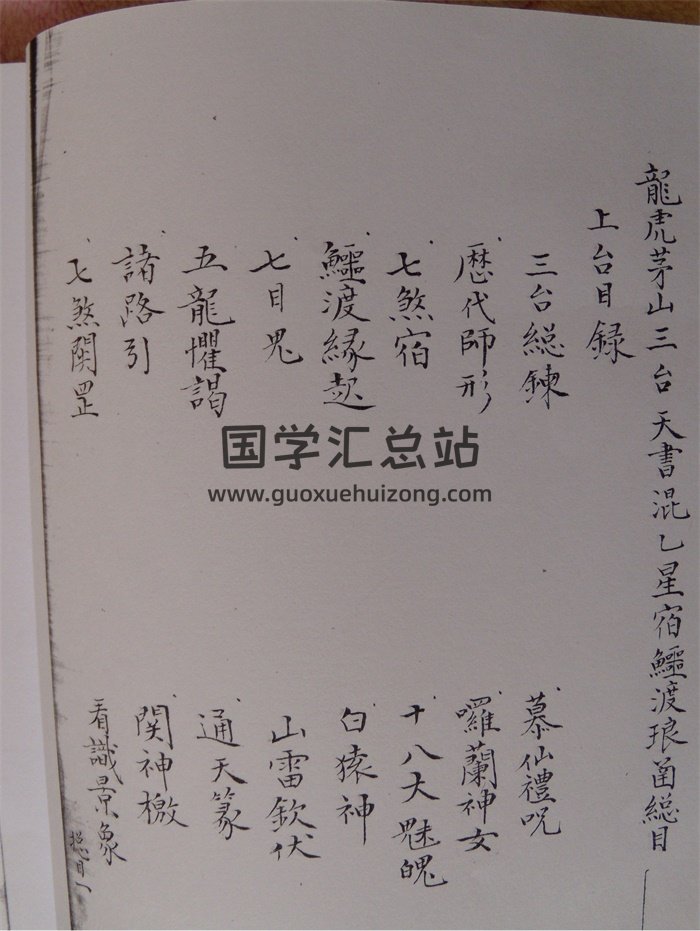 龍虎茅山三台天書混乙星宿鱷渡琅函總目
上台目録
三台総鍊
慕仙禮呪
歴代師形
囉蘭神女
七煞宿
十八大魅魄
鱷渡緣起
白猿神
七目鬼
山雷欽伏
五龍懼謁
通天篆
諸路引
関神檄
七煞関罡
看識景象
総目一
国学汇总站
www.guoxuehuizong.com